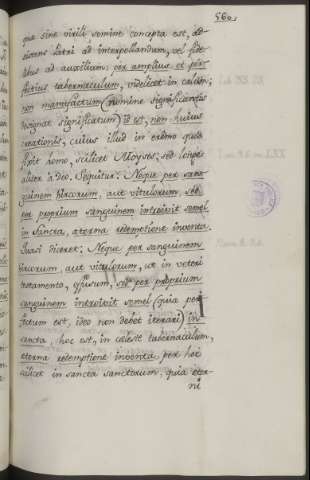 560.
quia sine virili semine concepta est, as-
sistens Patri ad interpellandum, vel fide-
libus ad auxilium: per amplius et per-
fectius tabernaculum, videlicet in caelum;
non manufactum (nomine significantis
designat significatum) id est, non huius
creationis, cuius illud in eremo quod
fecit homo, scilicet Moyses; sed longe
aliter a Deo. Sequitur: Neque per san-
guinem hircorum, aut vitulorum, sed
per proprium sanguinem introivit semel
in Sancta, aeterna redemptione inventa.
Quasi diceret: Neque per sanguinem
hircorum, aut vitulorum, ut in veteri
testamento, sed per proprium
sanguinem introivit semel (quia per-
fectum est, ideo non debet iterari) in
sancta, hoc est, in caeleste tabernaculum,
aeterna redemptione inventa per hoc
scilicet in sancta sanctorum, quia eter-
ni